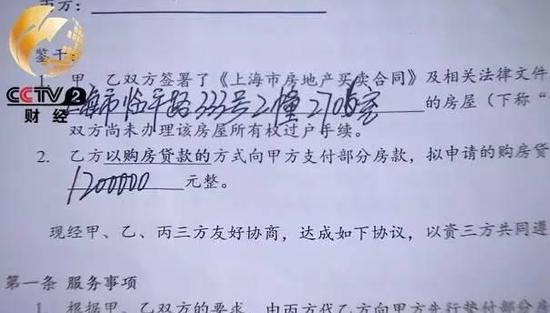 丙方：
鉴于：
1. 甲、乙双方签署了《上海市房地产买卖合同》及相关法律文件
上海市临平路333号2幢2706室 的房屋（下称“
双方尚未办理该房屋所有权过户手续。
2. 乙方以购房贷款的方式向甲方支付部分房款，拟申请的购房贷
1200000 元整。
现经甲、乙、丙三方友好协商，达成如下协议，以资三方共同遵
第一条 服务事项
1. 根据甲、乙双方的要求，由丙方代乙方向甲方先行垫付部分房
CCTV 2
财经